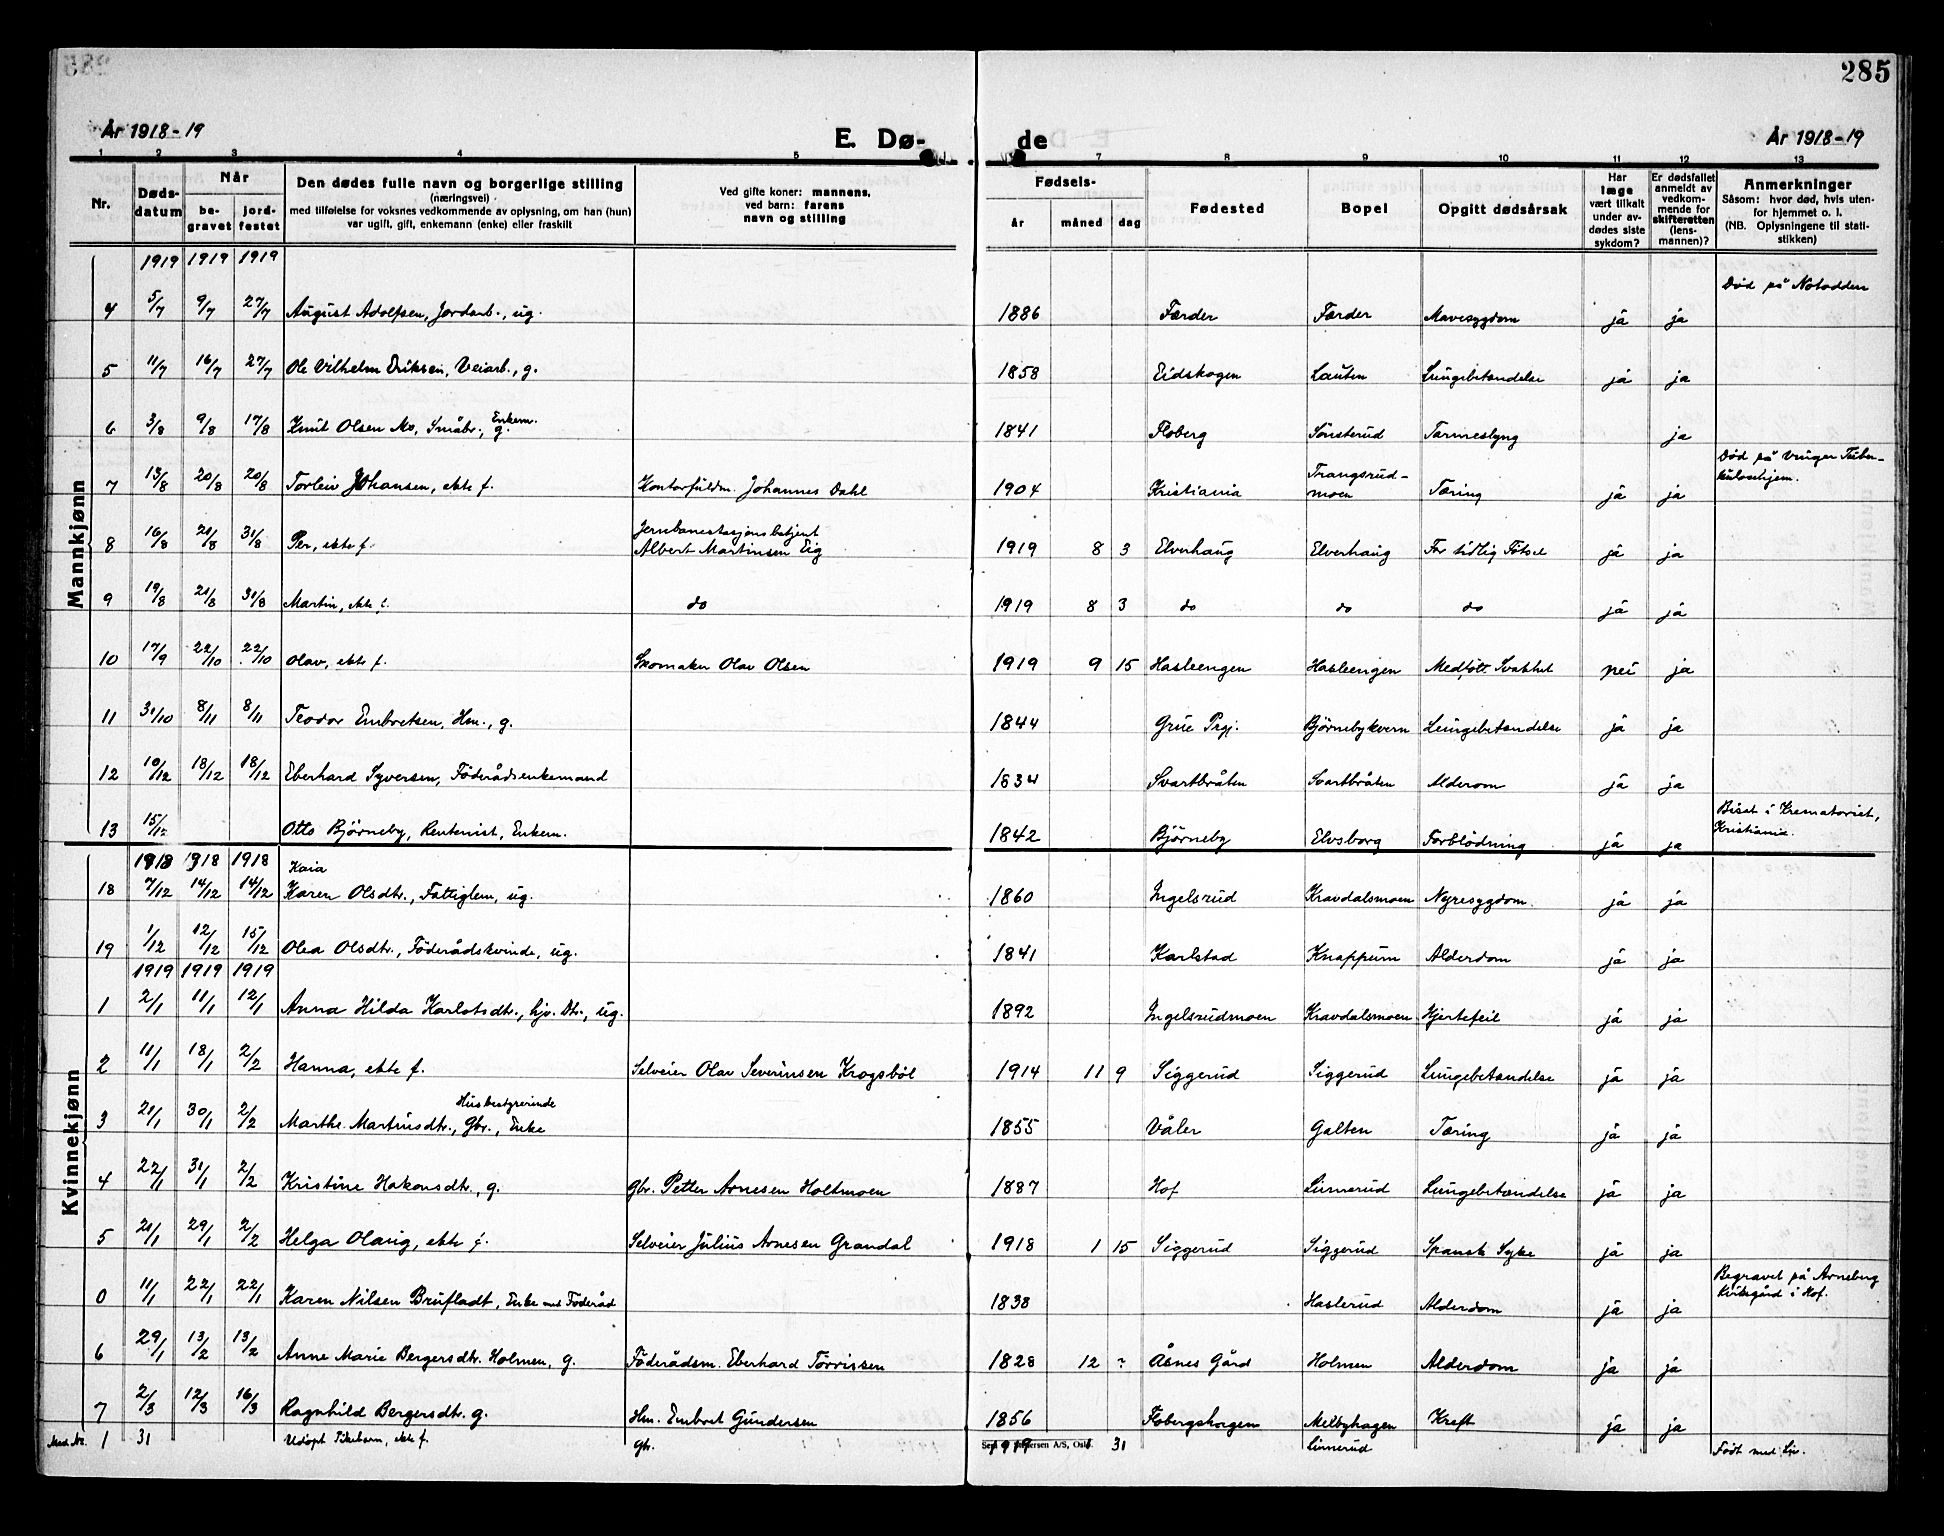 285
År 1918-19
E. Dø- de
År 1918-19
1 2 3 4 5 7 8 9 10 11 12 13
Nr. Dødsdatum Når begravet jordfestet Den dødes fulle navn og borgerlige stilling (næringsvei) med tilføielse for voksnes vedkommende av oplysning, om han (hun) var ugift, gift, enkemann (enke) eller fraskilt Ved gifte koner: mannens, ved barn: farens navn og stilling Fødsels- år måned dag Fødested Bopel Opgitt dødsårsak Har læge vært tilkalt under avdødes siste sykdom? Er dødsfallet anmeldt av vedkommende for skifteretten (lensmannen)? Anmerkninger Såsom: hvor død, hvis utenfor hjemmet o. l. (NB. Oplysningene til statistikken)
Mannkjønn
1919 1919 1919
4 5/7 9/7 27/7 August Adolfsen, Jordarb., ug. 1886 Førder Førder Mavesygdom ja ja Död på Notodden
5 11/7 16/7 27/7 Ole Vilhelm Eriksen, Veiarb., g. 1858 Eidskogen Lauten Lungebetændelse ja ja
6 3/8 9/8 17/8 Knut Olsen Mo, Småbr., Enkem. g. 1841 Floberg Sönsterud Tarmeslyng ja
7 13/8 20/8 20/8 Torleiv Johansen, ekte f. Kontorfuldm. Johannes Dahl 1904 Kristiania Trangsrudmoen Tæring ja ja Död på Vinger Tuberkulosehjem.
8 16/8 21/8 31/8 Per, ekte f. Jernbanestasjonsbetjent Albert Martinsen Eig 1919 8 3 Elverhaug Elverhaug For tidlig Fötsel ja ja
9 19/8 21/8 31/8 Martin, ekte f. do 1919 8 3 do do do ja ja
10 17/9 22/10 22/10 Olav, ekte f. Skomaker Olav Olsen 1919 9 15 Hasleengen Hasleengen Medfött Svakhet nei ja
11 31/10 8/11 8/11 Teodor Embretsen, Hm., g. 1844 Grue Prgj. Björnebykvern Lungebetændelse ja ja
12 10/12 18/12 18/12 Eberhard Syversen, Föderådsenkemand 1834 Svartbråten Svartbråten Alderdom ja ja
13 15/12 Otto Björneby, Rentenist, Enkem. 1842 Björneby Elvsborg Forblödning ja ja Biset i Krematoriet, Kristiania.
Kvinnekjønn
1918 1918 1918
18 7/12 14/12 14/12 Kaia Karen Olsdtr., Fattiglem, ug. 1860 Ingelsrud Kravdalsmoen Nyresygdom. ja ja
19 1/12 12/12 15/12 Olea Olsdtr., Föderådskvinde, ug. 1841 Karlstad Knappum Alderdom ja ja
1919 1919 1919
1 2/1 11/1 12/1 Anna Hilda Karlotsdtr., hjv. Dtr., ug. 1892 Ingelsrudmoen Kravdalsmoen Hjertefeil ja ja
2 11/1 18/1 2/2 Hanna, ekte f. Selveier Olav Severinsen Krogsböl 1914 11 9 Siggerud Siggerud Lungebetændelse ja ja
3 21/1 30/1 2/2 Marthe Martinsdtr., Husbestyrerinde Gbr., Enke 1855 Våler Galten Tæring ja ja
4 22/1 31/1 2/2 Kristine Hakonsdtr., g. Gbr. Petter Arnesen Holtmoen 1887 Hof Linnerud Lungebetændelse ja ja
5 21/1 29/1 2/2 Helga Olaug, ekte f. Selveier Julius Arnesen Grandal 1918 1 15 Siggerud Siggerud Spansk Syke ja ja
0 11/1 22/1 22/1 Karen Nilsen Brufladt, Enke med Föderåd 1838 Haslerud Alderdom ja ja Begravet på Arneberg Kirkegård i Hof.
6 29/1 13/2 13/2 Anne Marie Bergersdtr. Holmen, g. Föderådsm. Eberhard Torrissen 1828 12 ? Åsnes Gård Holmen Alderdom ja ja
7 2/3 12/3 16/3 Ragnhild Bergersdtr. g. Hm. Embret Gundersen 1856 Fobergshagen Melbyhagen Kreft ja ja
1 31 Udöpt Pikebarn, ekte f. Gbr. 1919 1 31 Linnerud Födt med Liv.